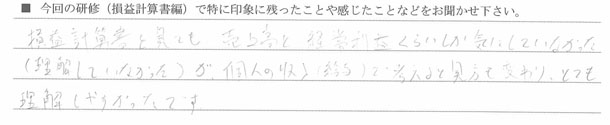 ■ 今回の研修（損益計算書編）で特に印象に残ったことや感じたことなどをお聞かせ下さい。
損益計算書と見ても、売上高と経常利益くらいしか気にしていなかった
（理解していなかった）が、個人の収入（給与）で考えると見方も変わり、とても
理解しやすかったです